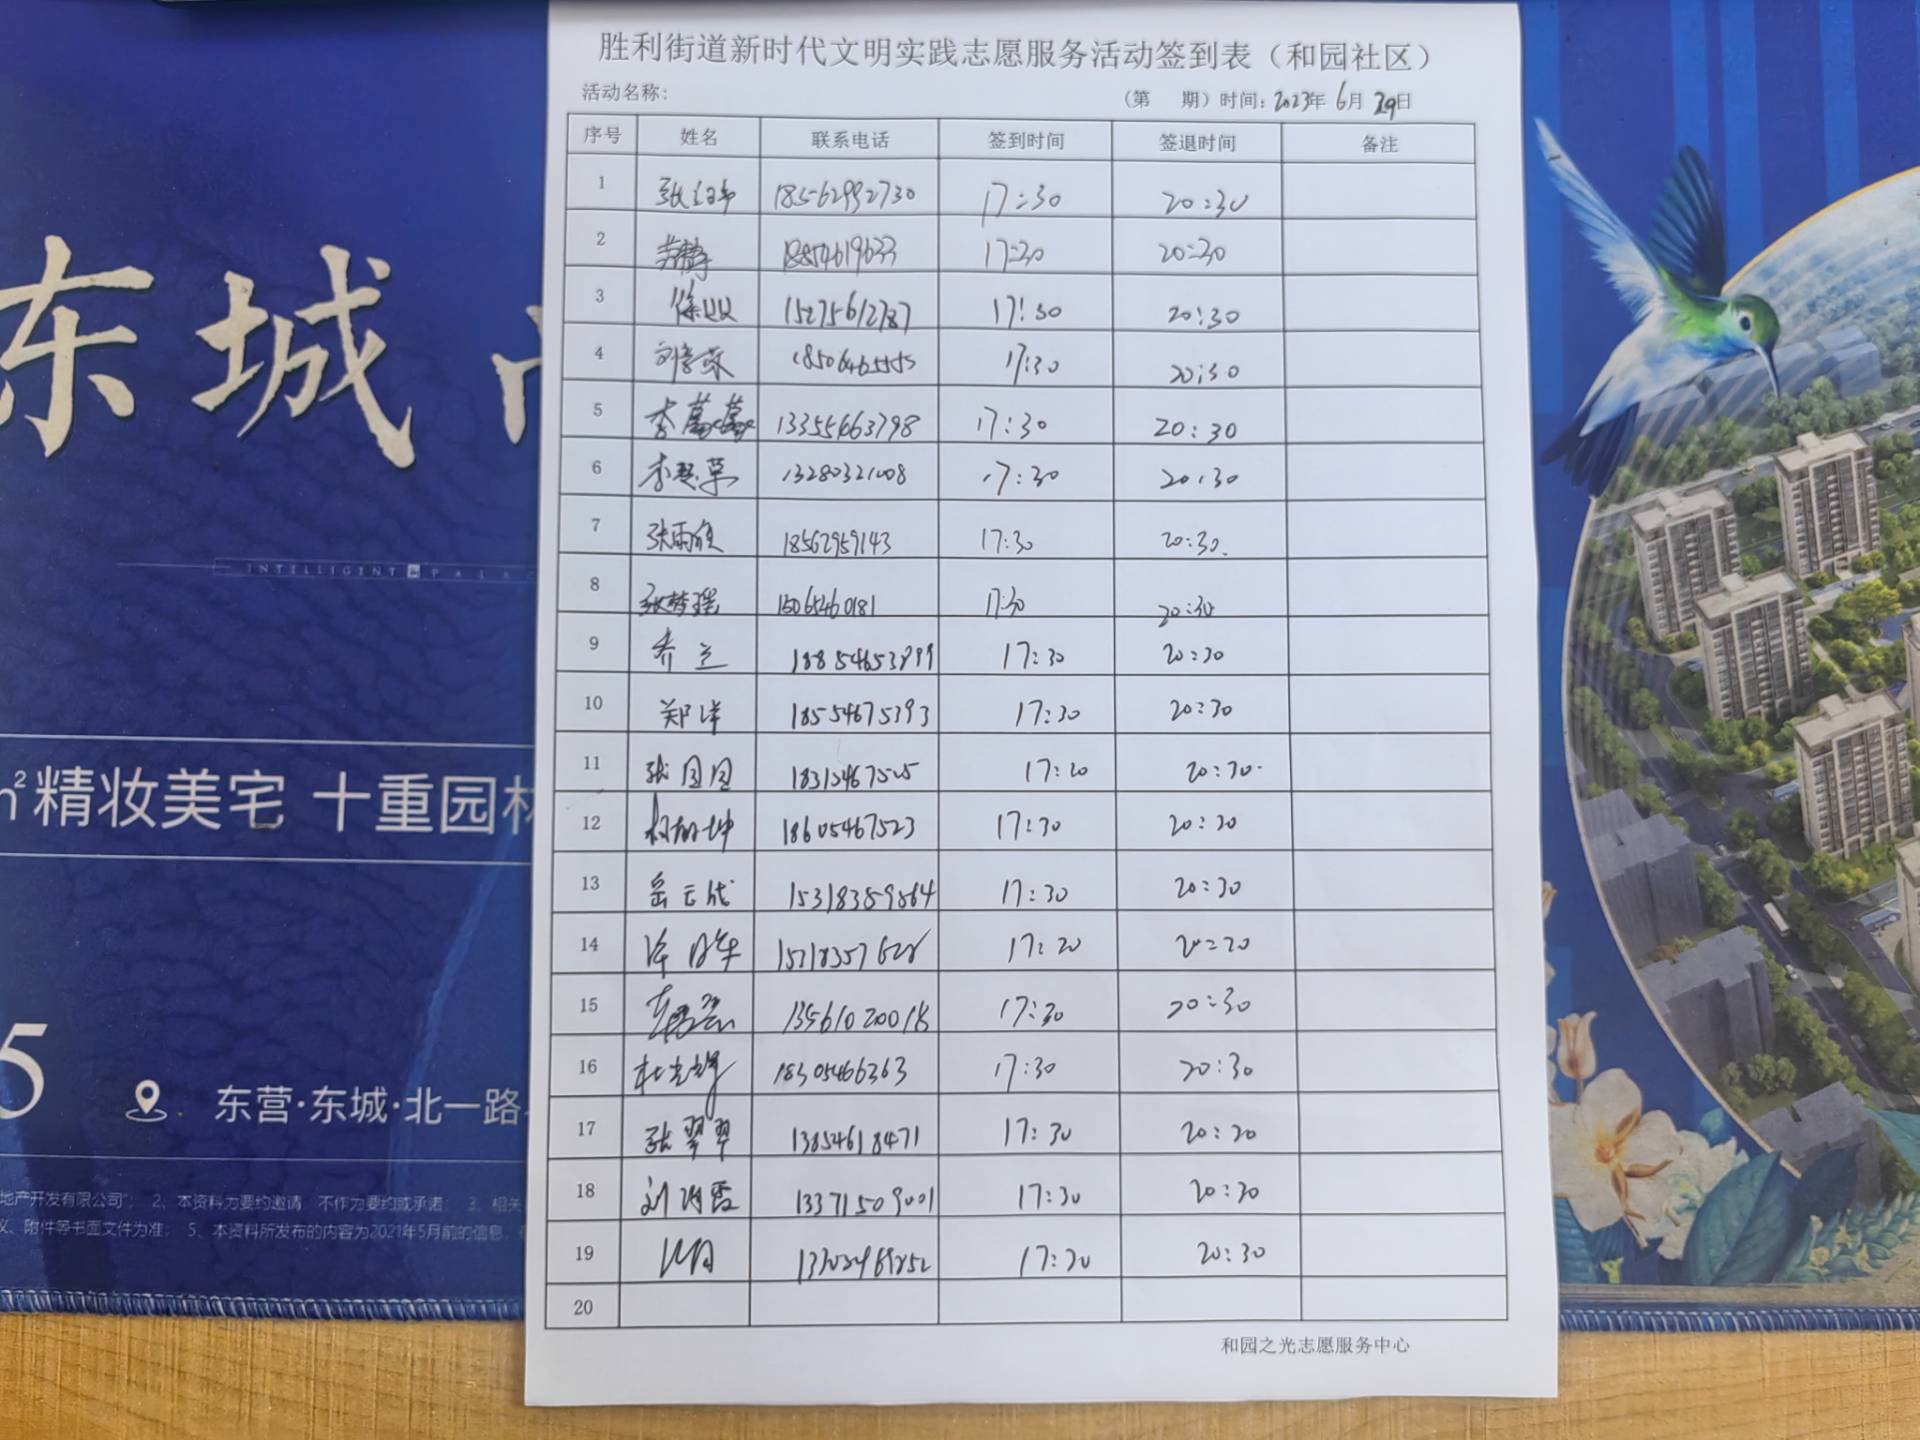 胜利街道新时代文明实践志愿服务活动签到表（和园社区）
活动名称： （第 期）时间：2023年 6月 29日
序号 姓名 联系电话 签到时间 签退时间 备注
1 18562992730 17:30 20:30
2 18854619633 17:30 20:30
3 15275612787 17:30 20:30
4 18506465555 17:30 20:30
5 李蔓蔓 13355463798 17:30 20:30
6 13280321008 17:30 20:30
7 张雨欣 18562959143 17:30 20:30
8 张梦瑶 15065460181 17:30 20:30
9 乔兰 18854653899 17:30 20:30
10 郑洋 18554675393 17:30 20:30
11 张园园 17:20 20:30
12 18605467523 17:30 20:30
13 岳云成 15318359564 17:30 20:30
14 17:20 20:20
15 13561020018 17:30 20:30
16 杜光辉 18305466363 17:30 20:30
17 张翠翠 13854618471 17:30 20:20
18 13371509001 17:30 20:30
19 17:30 20:30
20
和园之光志愿服务中心
东城
INTELLIGENT PALAC
m²精妆美宅 十重园林
5
东营·东城·北一路
地产开发有限公司”； 2、本资料为要约邀请，不作为要约或承诺； 3、相关
义、附件等书面文件为准； 5、本资料所发布的内容为2021年5月前的信息，